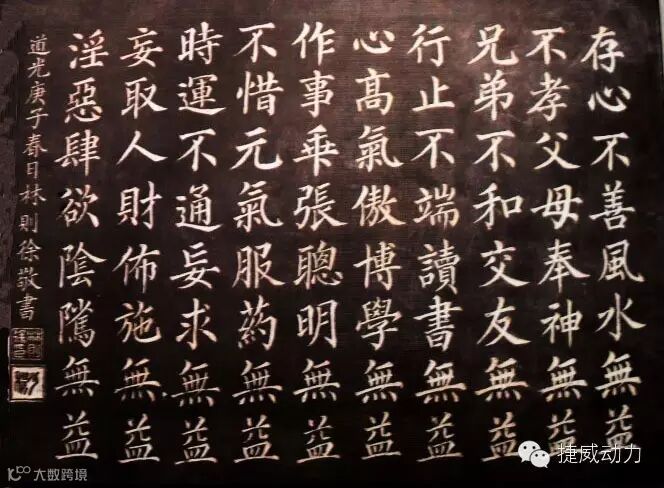 存心不善風水無益
不孝父母奉神無益
兄弟不和交友無益
行止不端讀書無益
心高氣傲博學無益
作事乖張聰明無益
不惜元氣服药無益
時運不通妄求無益
妄取人財佈施無益
淫惡肆欲陰隲無益
道光庚子春日林則徐敬書
捷威动力
大数跨境